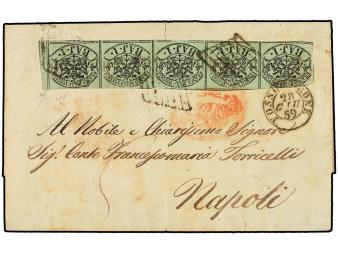 BAJ-1- BAJ-1- BAJ-1- BAJ-1- BAJ-1-
28
59
Al Nobile e Chiarissimo Signore
Sig. Conte Francescomaria Torricelli
Napoli